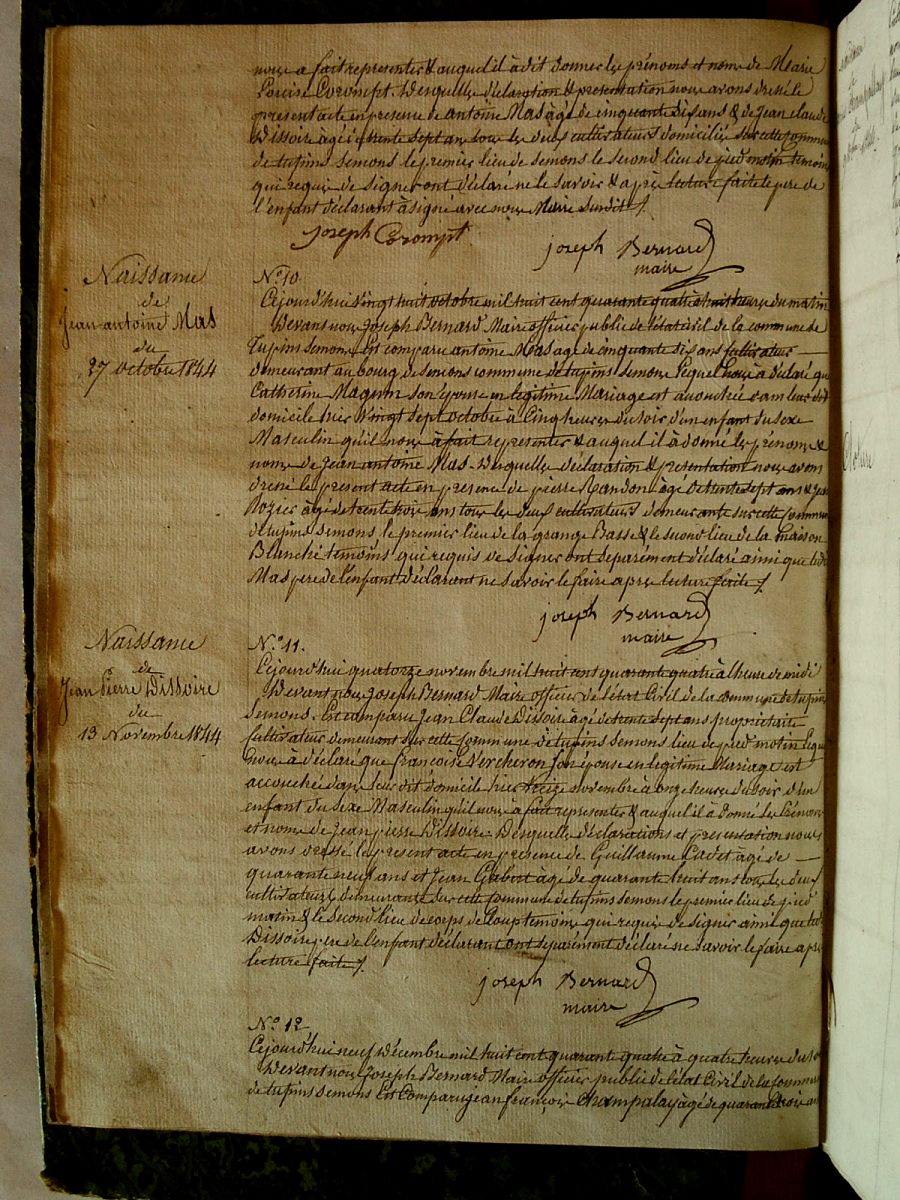 nous a fait representer & auquel il à dit donner les prénoms et nom de Marie
Louise Corompt. Desquelles déclaration & présentation nous avons dressé le
present acte en presence de antoine Mas agé de cinquante dix ans & de Jean claude
Dissoire agé de trente sept ans tous les deux cultivateurs domiciliés sur cette commune
de tupins semons le premier lieu de semons le second lieu de pied motin temoins
qui requis de signer ont déclaré ne le savoir & après lecture faite le pere de
l'enfant déclarant à signé avec nous Maire Susdit /.
joseph Corompt
joseph Bernard
maire
Naissance
de
Jean antoine Mas
du
27 octobre 1844
N.° 10.
Cejourd'hui vingt huit octobre mil huit cent quarante quatre à huit heures du matin
Devans nous Joseph Bernard Maire officier public de l'état civil de la commune de
Tupins semons Est comparu antoine Mas agé de cinquante dix ans cultivateur
demeurant au bourg de semons commune de tupins semons lequel nous a déclaré que
Catherine Magnin son épouse en legitime Mariage est accouchée dans leur dit
domicile hier Vingt sept octobre à Cinq heures du soir d'un enfant du sexe
Masculin qu'il nous à fait representer & auquel il à donné les prénoms &
noms de Jean antoine Mas. Desquelles déclaration & présentation nous avons
dressé le présent acte en presence de pierre Randon agé de trente sept ans & Jean
Rozier agé de trente trois ans tous les deux cultivateurs demeurants sur cette commune
de tupins semons le premier lieu de la grange Basse & le second lieu de la maison
Blanche temoins qui requis de signer ont separément déclaré ainsi que ledit
Mas pere de l'enfant déclarant ne savoir le faire après lecture faite /.
joseph Bernard
maire
Naissance
de
Jean Pierre Dissoire
du
13 Novembre 1844
N.° 11.
Cejourd'hui quatorze novembre mil huit cent quarante quatre à l'heure de midi
Devant nous Joseph Bernard Maire officier de l'état Civil de la commune de tupins
Semons. Est comparu Jean Claude Dissoire agé de trente sept ans propriétaire
Cultivateur demeurant sur cette commune de tupins semons lieu de pied motin lequel
nous à déclaré que francoise Vercheron son épouse en legitime Mariage est
accouchée dans leur dit domicile hier treize novembre à onze heures du soir d'un
enfant du sexe Masculin qu'il nous à fait representer & auquel il à donné les prénoms
et noms de Jean pierre Dissoire Desquelles déclarations et presentation nous
avons dressé le present acte en presence de Guillaume Cadet agé de
quarante neuf ans et Jean Gabert agé de quarante huit ans tous les deux
cultivateurs demeurants sur cette commune de tupins semons le premier lieu de pied
motin & le Second lieu de corps de Loup temoins qui requis de signer ainsi que ledit
Dissoire pere de l'enfant déclarant ont separément déclaré ne savoir le faire après
lecture faite /.
joseph Bernard
maire
N.° 12
Cejourd'hui neuf Décembre mil huit cent quarante quatre à quatre heures du soir
Devant nous Joseph Bernard Maire officier public de l'état Civil de la Commune
de tupins semons Est Comparu jean françois Champalay agé de quarante trois ans